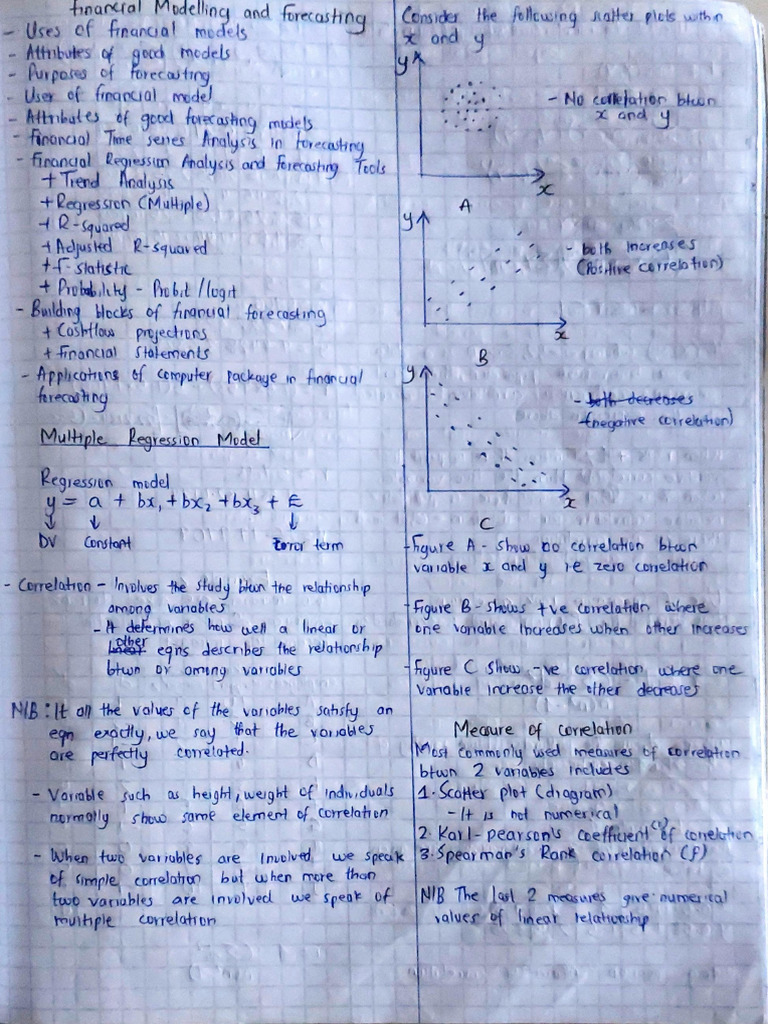 Financial Modelling and Forecasting
- Uses of financial models
- Attributes of good models
- Purposes of forecasting
- User of financial model
- Attributes of good forecasting models
- Financial Time series Analysis in forecasting
- Financial Regression Analysis and Forecasting Tools
+ Trend Analysis
+ Regression (Multiple)
+ R-squared
+ Adjusted R-squared
+ F-statistic
+ Probability - Probit / logit
- Building blocks of financial forecasting
+ Cashflow projections
+ Financial Statements
- Applications of computer package in financial
forecasting
Multiple Regression Model
Regression model
y = a + bx₁ + bx₂ + bx₃ + E
DV Constant Error term
- Correlation - Involves the study btwn the relationship
among variables
- It determines how well a linear or
other
eqns describes the relationship
btwn or among variables
N/B: If all the values of the variables satisfy an
eqn exactly, we say that the variables
are perfectly correlated.
- Variable such as height, weight of individuals
normally show some element of correlation
- When two variables are involved we speak
of simple correlation but when more than
two variables are involved we speak of
multiple correlation
Consider the following scatter plots within
x and y
y
- No correlation btwn
x and y
x
A
y
- both increases
(Positive correlation)
x
B
y
- both decreases
(negative correlation)
x
C
- Figure A - show no correlation btwn
variable x and y ie zero correlation
- Figure B - shows +ve correlation where
one variable increases when other increases
- Figure C show -ve correlation where one
variable increase the other decreases
Measure of correlation
Most commonly used measures of correlation
btwn 2 variables includes
1. Scatter plot (diagram)
- It is not numerical
2. Karl-pearson's coefficient (r) of correlation
3. Spearman's Rank correlation (ρ)
N/B The last 2 measures give numerical
values of linear relationship